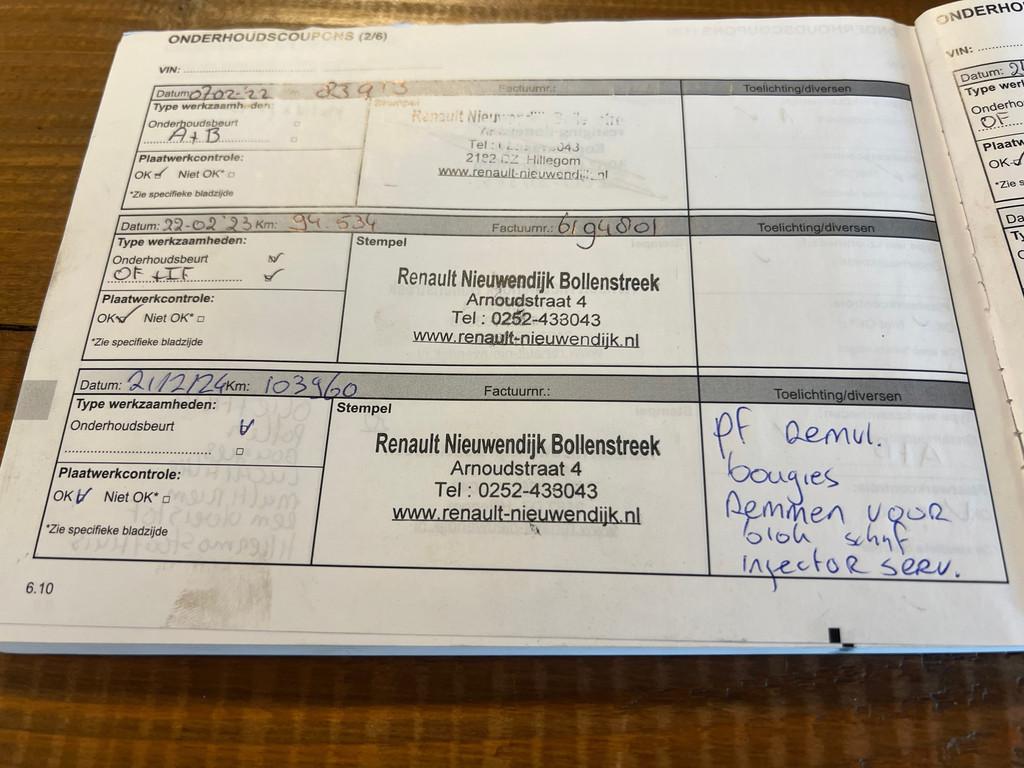 ONDERHOUDSCOUPONS (2/6)
VIN:
Datum: 07-02-'22 Factuurnr.: Toelichting/diversen
Type werkzaamheden:
Onderhoudsbeurt
A+B
Plaatwerkcontrole:
OK Niet OK*
*Zie specifieke bladzijde
Renault Nieuwendijk Bollenstreek
Tel :
2182 CZ Hillegom
www.renault-nieuwendijk.nl
Datum: 22-02'23 Km: 94.534 Factuurnr.: 6194801 Toelichting/diversen
Type werkzaamheden:
Onderhoudsbeurt
OF + IF
Plaatwerkcontrole:
OK Niet OK*
*Zie specifieke bladzijde
Stempel
Renault Nieuwendijk Bollenstreek
Arnoudstraat 4
Tel : 0252-433043
www.renault-nieuwendijk.nl
Datum: 21/2/24 Km: 103960 Factuurnr.: Toelichting/diversen
Type werkzaamheden:
Onderhoudsbeurt
Plaatwerkcontrole:
OK Niet OK*
*Zie specifieke bladzijde
Stempel
Renault Nieuwendijk Bollenstreek
Arnoudstraat 4
Tel : 0252-433043
www.renault-nieuwendijk.nl
pf Remvl.
bougies
Remmen voor
blok schijf
injector serv.
6.10
VIN:
Datum:
OF